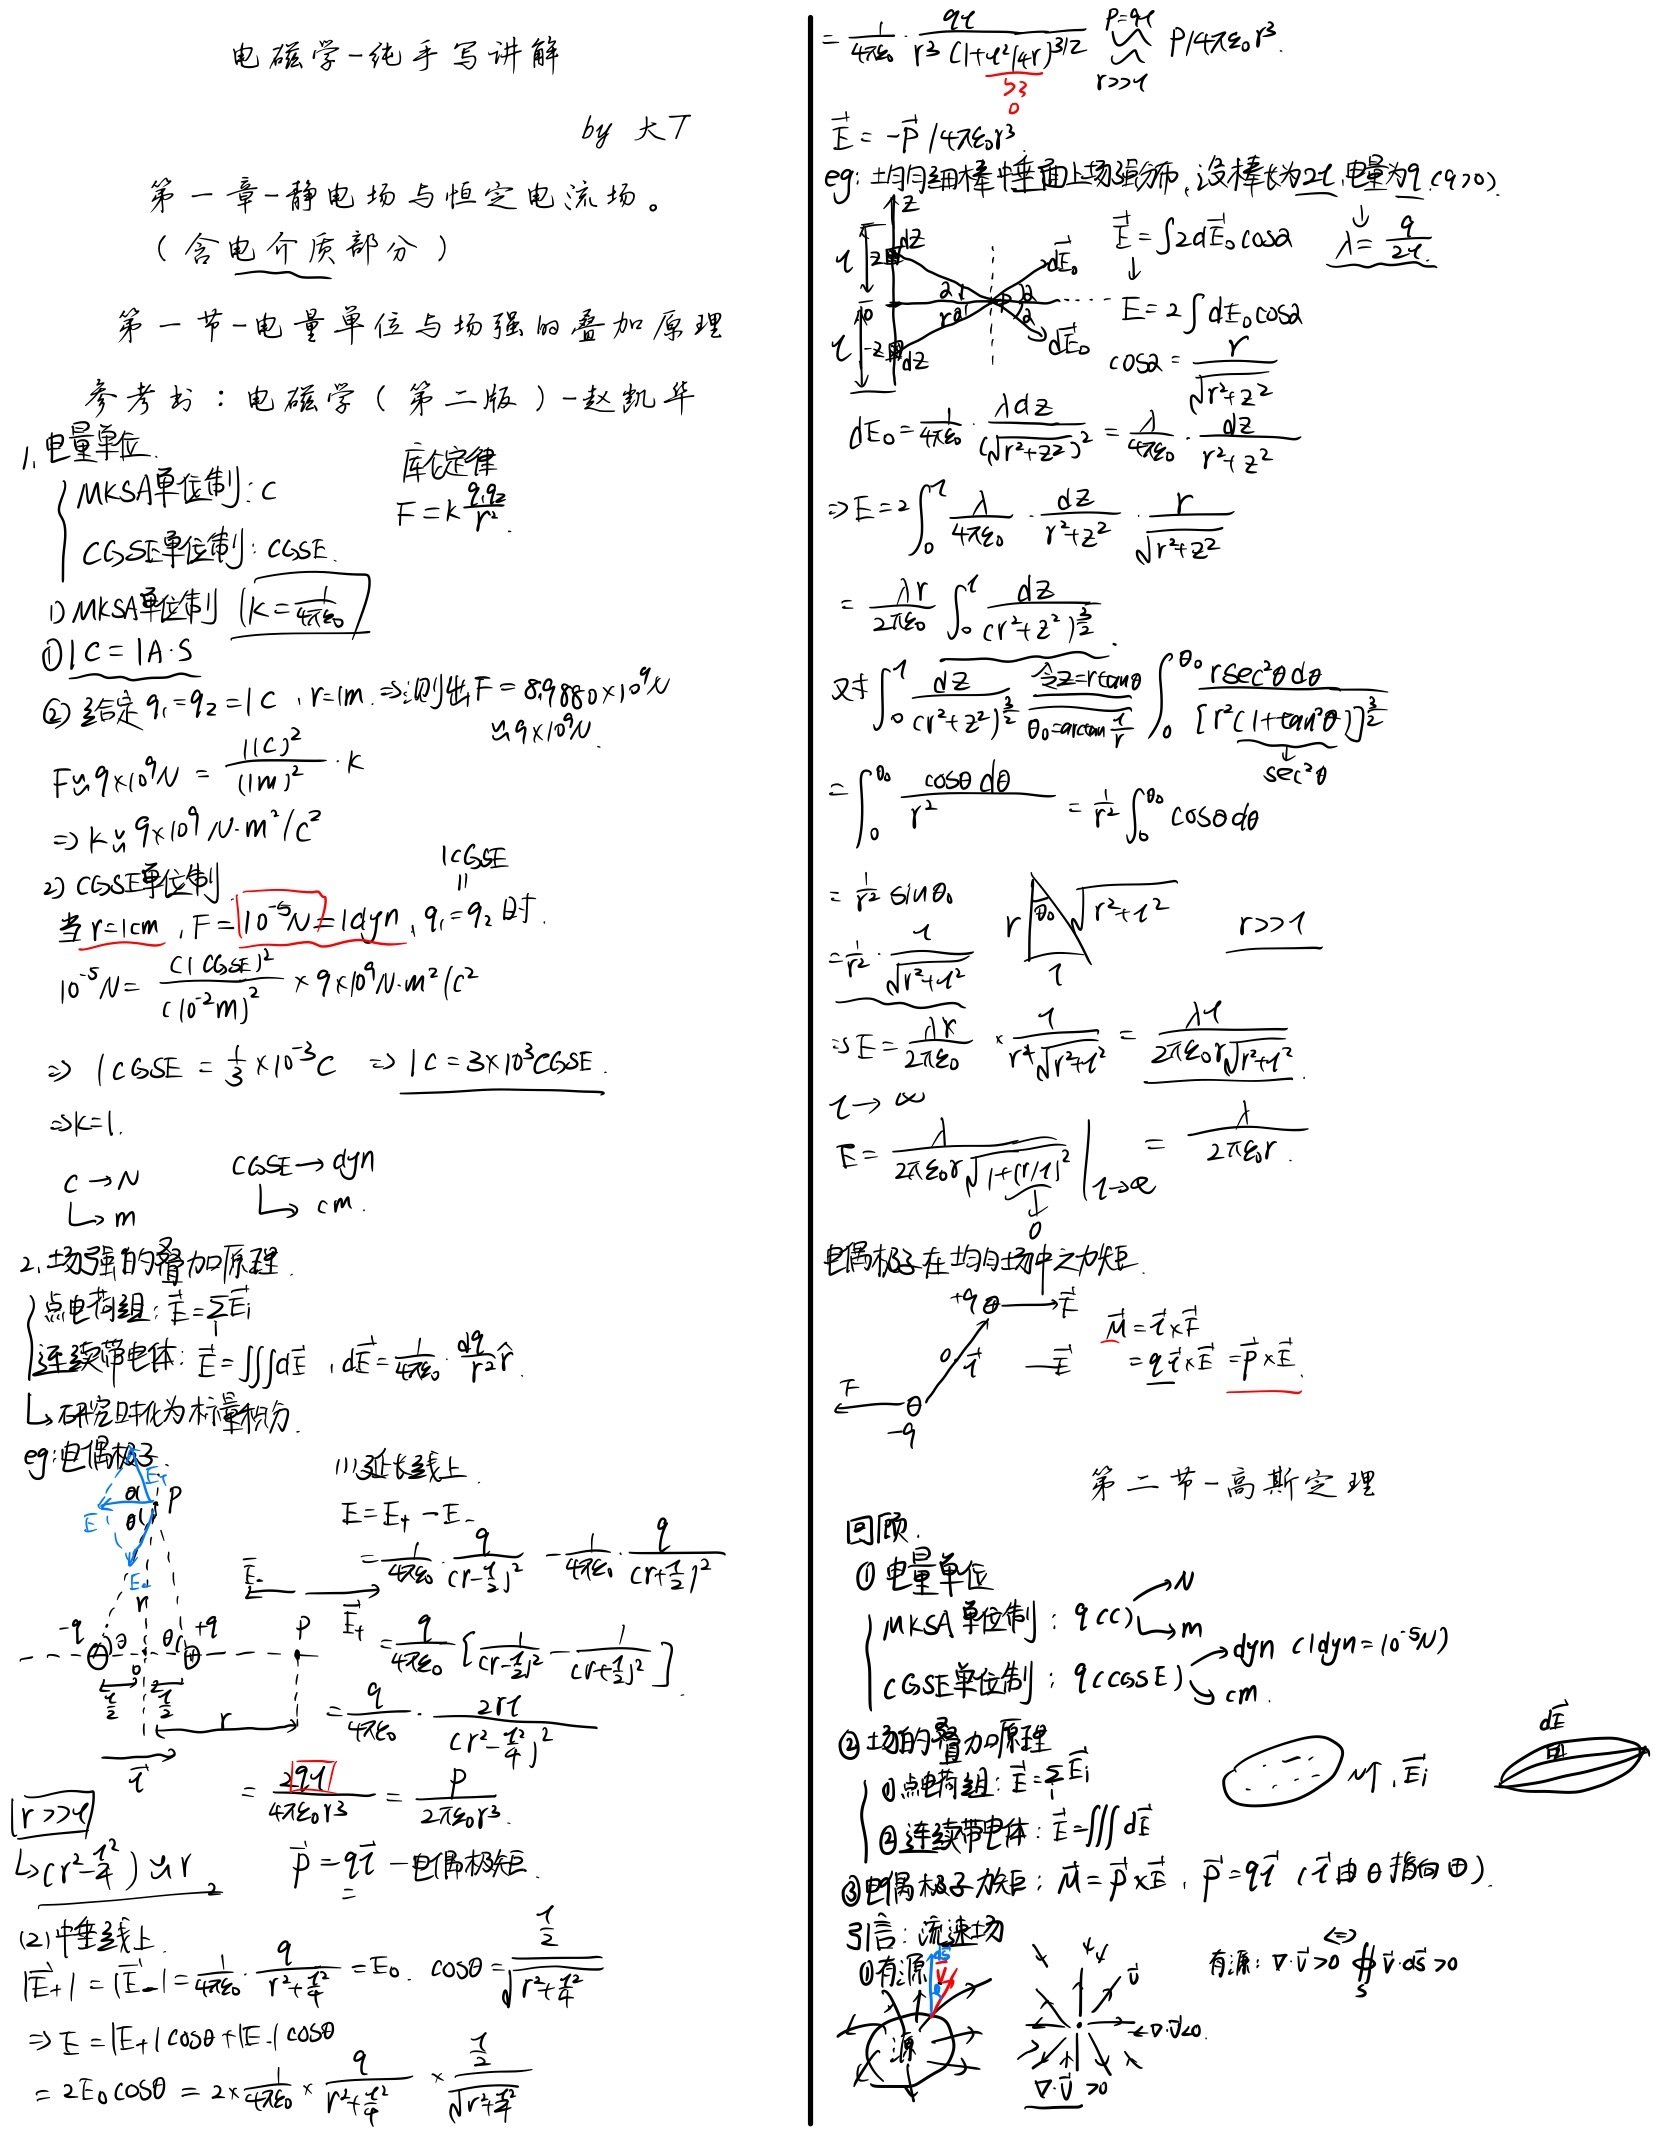 电磁学-纯手写讲解
by 大T
第一章-静电场与恒定电流场。
(含电介质部分)
第一节-电量单位与场强的叠加原理
参考书:电磁学(第二版)-赵凯华
1.电量单位.
MKSA单位制:C
CGSE单位制:CGSE.
库仑定律
F=k q₁q₂/r².
1) MKSA单位制 (k=1/4πε₀)
① 1C=1A·S
② 给定q₁=q₂=1C,r=1m.⇒测出F=8.9880×10⁹N
≈9×10⁹N.
F≈9×10⁹N = (1C)²/(1m)² · k
⇒k≈9×10⁹N·m²/C²
2) CGSE单位制
1CGSE
=
当r=1cm,F=10⁻⁵N=1dyn,q₁=q₂时.
10⁻⁵N= (1CGSE)²/(10⁻²m)² × 9×10⁹N·m²/C²
⇒ 1CGSE = 1/3 ×10⁻³C ⇒ 1C=3×10³CGSE.
⇒k=1.
C→N
↳m
CGSE→dyn
↳cm.
2.场强的叠加原理.
点电荷组:E⃗=∑ᵢE⃗i
连续带电体:E⃗=∭dE⃗,dE⃗=1/4πε₀ · dq/r² r̂.
↳研究时化为标量积分.
eg:电偶极子.
E₊ θ P E θ E₋ r
-q θ θ +q P
o l/2 l/2 r
l⃗
E⃗₋ E⃗₊
(1)延长线上.
E=E₊-E₋
=1/4πε₀ · q/(r-l/2)² - 1/4πε₀ · q/(r+l/2)²
=q/4πε₀ [1/(r-l/2)² - 1/(r+l/2)²].
=q/4πε₀ · 2rl/(r²-l²/4)²
=2ql/4πε₀r³ = p/2πε₀r³.
r>>l
↳(r²-l²/4)≈r²
p⃗=ql⃗-电偶极矩.
(2)中垂线上.
|E⃗₊|=|E⃗₋|=1/4πε₀ · q/(r²+l²/4) =E₀. cosθ=(l/2)/√(r²+l²/4)
⇒E=|E₊|cosθ+|E₋|cosθ
=2E₀cosθ=2×1/4πε₀ × q/(r²+l²/4) × (l/2)/√(r²+l²/4)
=1/4πε₀ · ql/r³(1+l²/4r)^3/2 p=ql ≈ r>>l p/4πε₀r³.
0
E⃗=-p⃗/4πε₀r³.
eg:均匀细棒中垂面上场强分布,设棒长为2l,电量为q(q>0).
Z dZ l Z o r α α P dE⃗₀
l -Z dZ dE⃗₀
E⃗=∫2dE⃗₀cosα
↓
E=2∫dE₀cosα
↓
λ=q/2l.
cosα=r/√(r²+z²)
dE₀=1/4πε₀ · λdz/(√(r²+z²))² = λ/4πε₀ · dz/(r²+z²)
⇒E=2∫₀ˡ λ/4πε₀ · dz/(r²+z²) · r/√(r²+z²)
=λr/2πε₀ ∫₀ˡ dz/(r²+z²)^3/2.
对∫₀ˡ dz/(r²+z²)^3/2 令z=rtanθ θ₀=arctan l/r ∫₀^θ₀ rsec²θdθ/[r²(1+tan²θ)]^3/2
↓
sec²θ
=∫₀^θ₀ cosθdθ/r² = 1/r² ∫₀^θ₀ cosθdθ
=1/r² sinθ₀
r θ₀ √(r²+l²) l
r>>l
=1/r² · l/√(r²+l²)
⇒E=λr/2πε₀ × l/r²√(r²+l²) = λl/2πε₀r√(r²+l²).
l→∞
E=λ/2πε₀r√(1+(r/l)²) |l→∞ = λ/2πε₀r.
↓
0
电偶极子在均匀场中之力矩.
+q⊕→F⃗
F⃗ o l⃗ —E⃗
⊖
-q
M⃗=l⃗×F⃗
=ql⃗×E⃗=p⃗×E⃗.
第二节-高斯定理
回顾.
①电量单位
MKSA单位制:q(C) →N ↳m
CGSE单位制:q(CGSE) →dyn (1dyn=10⁻⁵N)
↘cm.
②场的叠加原理
①点电荷组:E⃗=∑ᵢE⃗i
②连续带电体:E⃗=∭dE⃗
N个,E⃗i
dE⃗
③电偶极子力矩:M⃗=p⃗×E⃗,p⃗=ql⃗(l⃗由⊖指向⊕).
引言:流速场
①有源
ds⃗ v⃗ θ
源
v⃗
←∇·v⃗<0.
∇·v⃗>0
有源:∇·v⃗>0 ⇔ ∯ₛv⃗·ds⃗>0